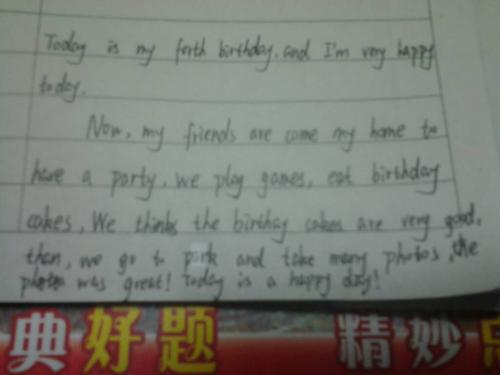 Today is my forth birthday. and I'm very happy
today.
Now, my friends are come my home to
have a party, we play games, eat birthday
cakes, We thinks the birthay cakes are very good,
than, we go to park and take many photos, the
photos was great! Today is a happy day!
典好题 精妙